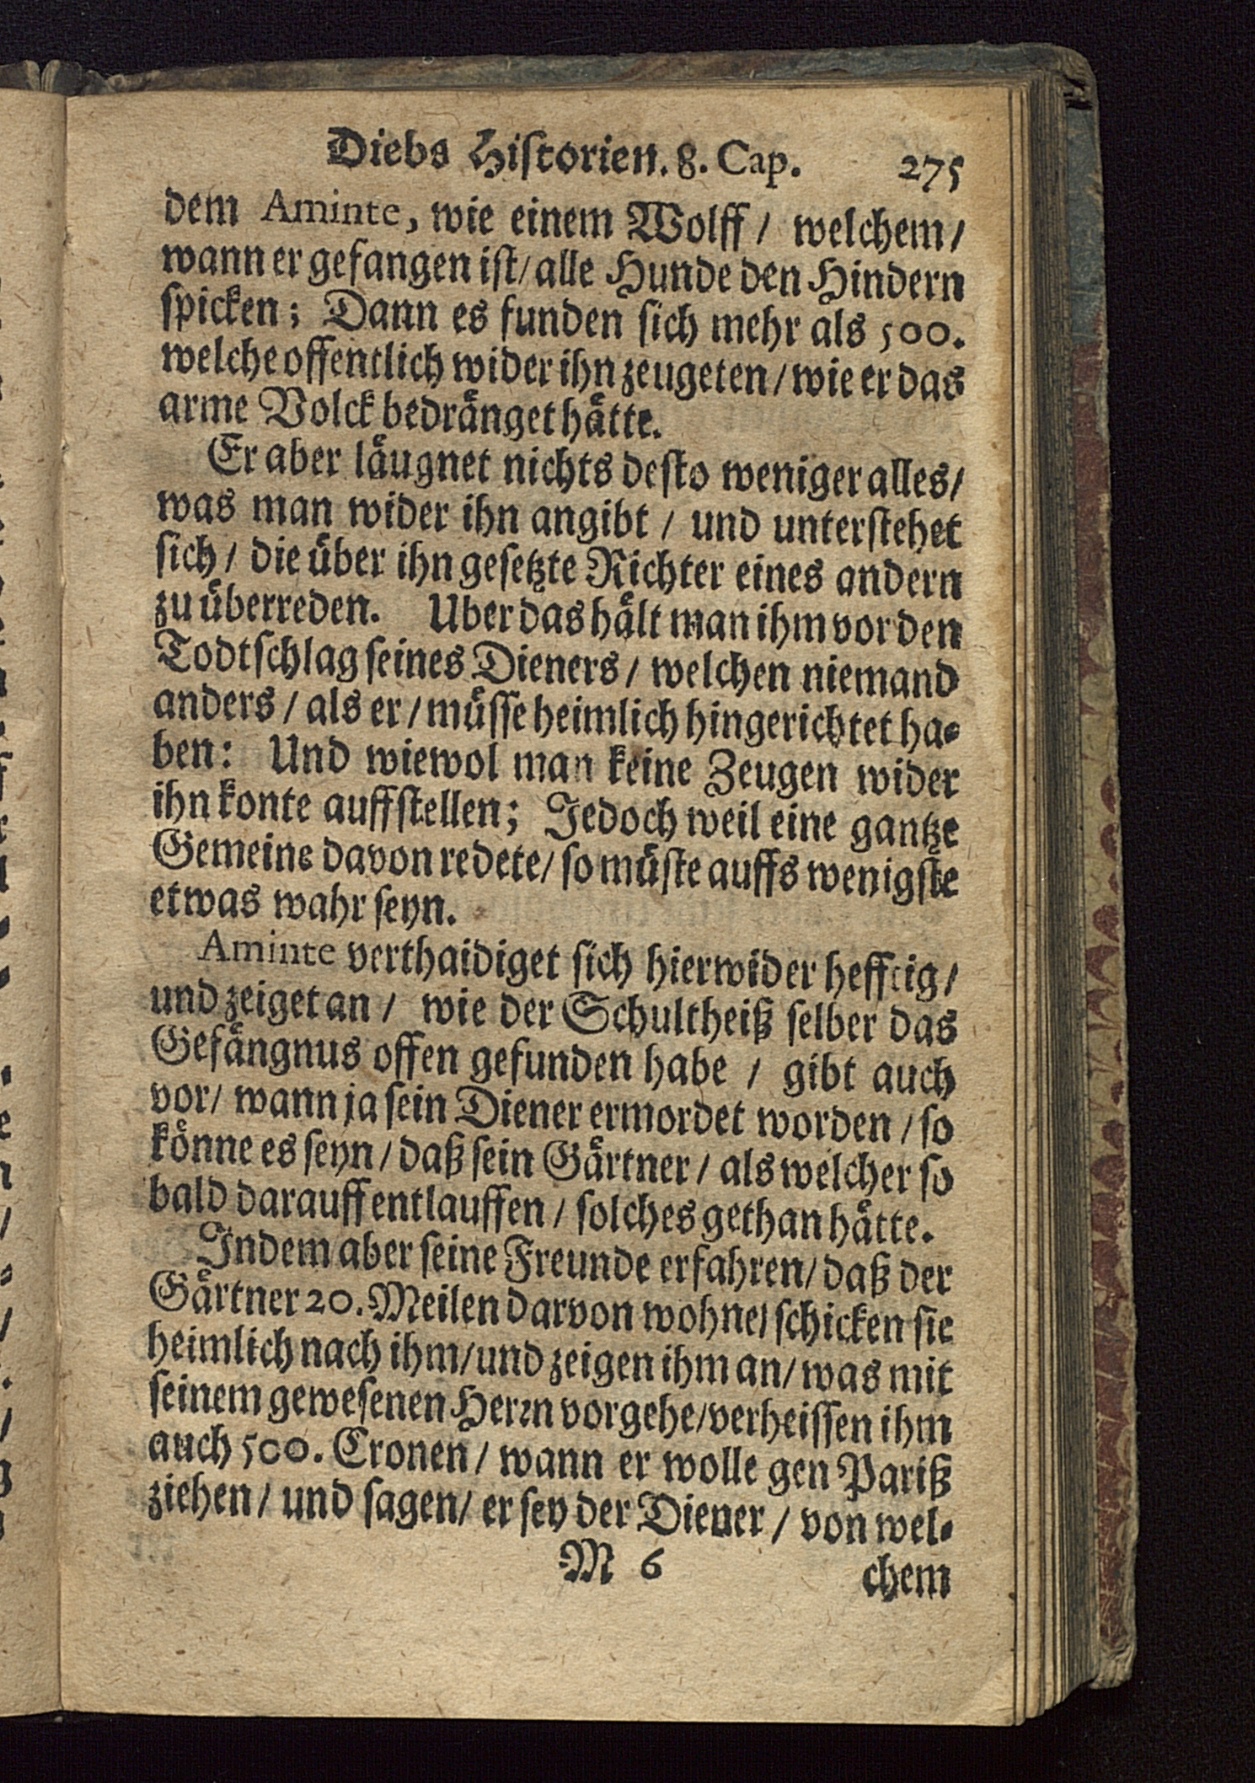 Diebs Historien. 8. Cap. 275
dem Aminte, wie einem Wolff / welchem /
wann er gefangen ist / alle Hunde den Hindern
spicken; Dann es funden sich mehr als 500.
welche offentlich wider ihn zeugeten / wie er das
arme Volck bedränget hätte.
Er aber läugnet nichts desto weniger alles /
was man wider ihn angibt / und unterstehet
sich / die über ihn gesetzte Richter eines andern
zu überreden. Uber das hält man ihm vor den
Todtschlag seines Dieners / welchen niemand
anders / als er / müsse heimlich hingerichtet ha-
ben: Und wiewol man keine Zeugen wider
ihn konte auffstellen; Jedoch weil eine gantze
Gemeine davon redete / so müste auffs wenigste
etwas wahr seyn.
Aminte verthaidiget sich hierwider hefftig /
und zeiget an / wie der Schultheiß selber das
Gefängnus offen gefunden habe / gibt auch
vor / wann ja sein Diener ermordet worden / so
könne es seyn / daß sein Gärtner / als welcher so
bald darauff entlauffen / solches gethan hätte.
Indem aber seine Freunde erfahren / daß der
Gärtner 20. Meilen darvon wohne / schicken sie
heimlich nach ihm / und zeigen ihm an / was mit
seinem gewesenen Herrn vorgehe / verheissen ihm
auch 500. Cronen / wann er wolle gen Pariß
ziehen / und sagen / er sey der Diener / von wel-
M 6 chem